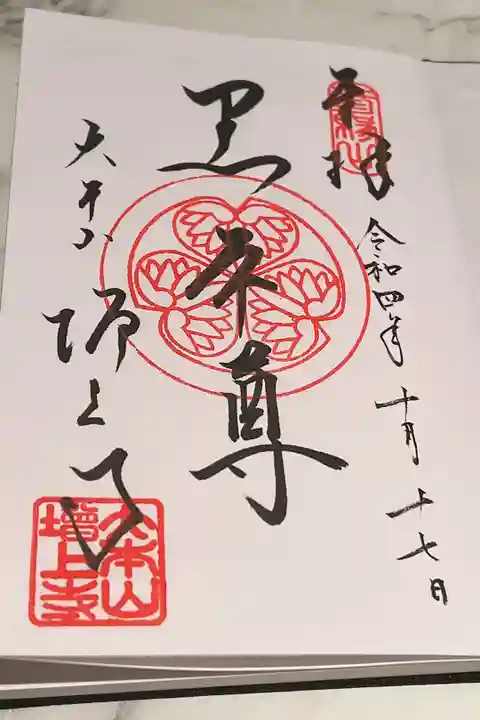 奉拝
令和四年 十月 十七日
黒本尊
大本山 増上寺
大本山
増上寺